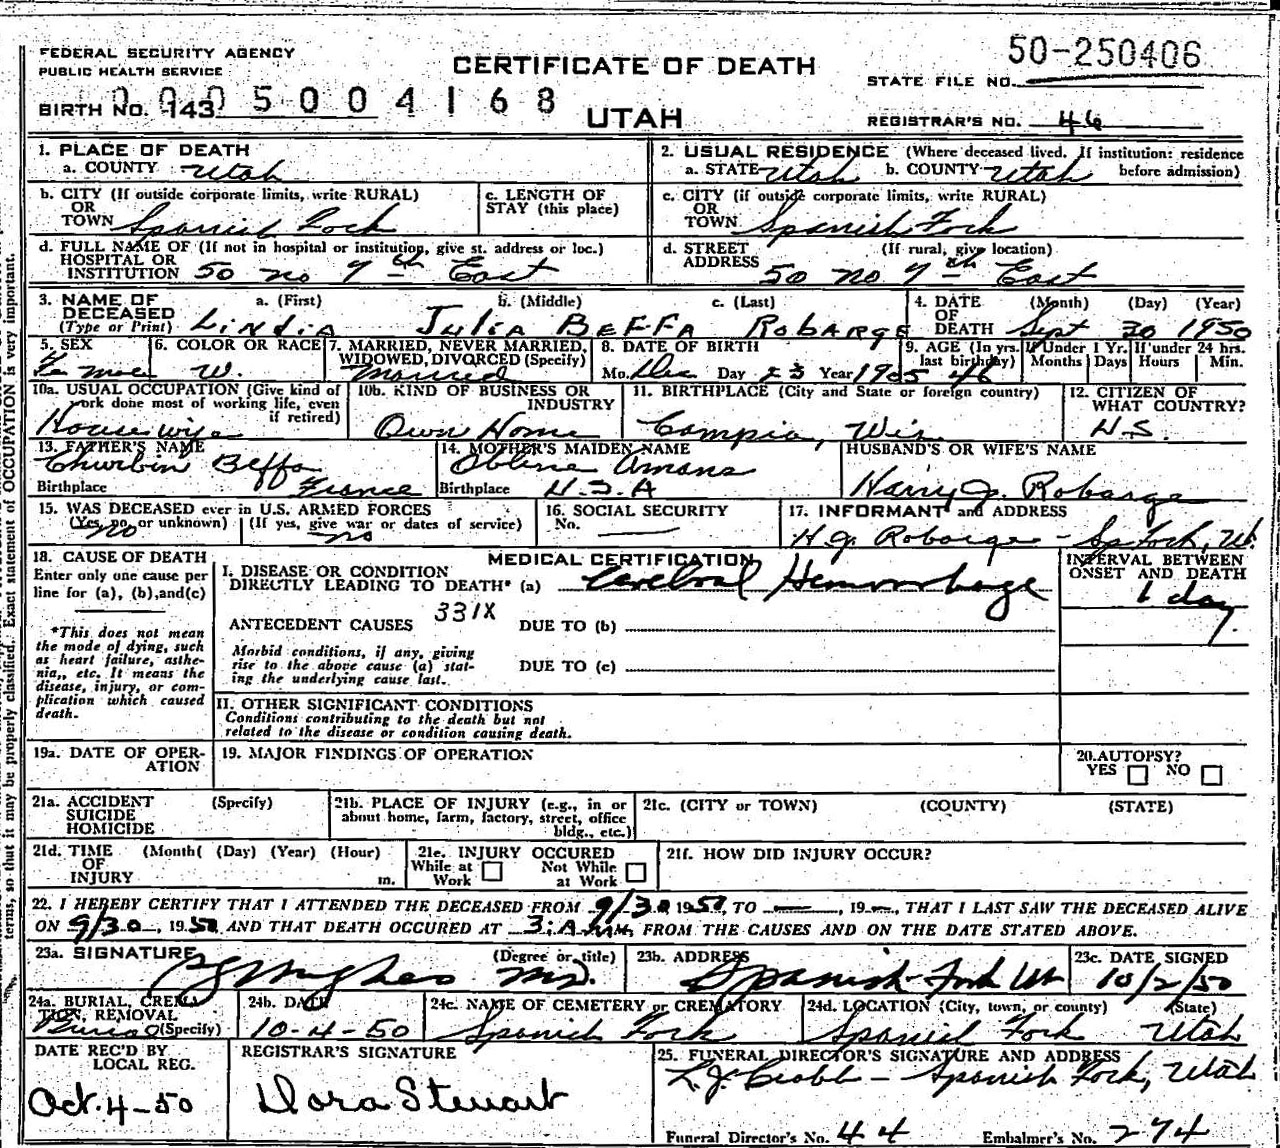 FEDERAL SECURITY AGENCY
PUBLIC HEALTH SERVICE
CERTIFICATE OF DEATH
UTAH
50-250406
STATE FILE NO.
0005004168
BIRTH NO. 143
REGISTRAR'S NO. 46
1. PLACE OF DEATH
a. COUNTY Utah
2. USUAL RESIDENCE (Where deceased lived. If institution: residence
a. STATE Utah b. COUNTY Utah before admission)
b. CITY (If outside corporate limits, write RURAL)
OR
TOWN Spanish Fork
c. LENGTH OF
STAY (this place)
c. CITY (if outside corporate limits, write RURAL)
OR
TOWN Spanish Fork
d. FULL NAME OF (If not in hospital or institution, give st. address or loc.)
HOSPITAL OR
INSTITUTION 50 no 7th East
d. STREET (If rural, give location)
ADDRESS 50 no 7th East
3. NAME OF DECEASED
(Type or Print)
a. (First) b. (Middle) c. (Last)
Lindia Julia Beffa Robarge
4. DATE OF DEATH (Month) (Day) (Year)
Sept 30 1950
5. SEX
Female
6. COLOR OR RACE
W.
7. MARRIED, NEVER MARRIED,
WIDOWED, DIVORCED (Specify)
Married
8. DATE OF BIRTH
Mo. Dec Day 23 Year 1905
9. AGE (In yrs. last birthday) If Under 1 Yr. If under 24 hrs.
Months Days Hours Min.
46
10a. USUAL OCCUPATION (Give kind of
work done most of working life, even
if retired)
Housewife
10b. KIND OF BUSINESS OR
INDUSTRY
Own Home
11. BIRTHPLACE (City and State or foreign country)
Campia, Wis
12. CITIZEN OF
WHAT COUNTRY?
U.S.
13. FATHER'S NAME
Beffa
Birthplace France
14. MOTHER'S MAIDEN NAME
Amans
Birthplace U.S.A
HUSBAND'S OR WIFE'S NAME
Harry J. Robarge
15. WAS DECEASED ever in U.S. ARMED FORCES
(Yes, no, or unknown) (If yes, give war or dates of service)
no no
16. SOCIAL SECURITY
No. —
17. INFORMANT and ADDRESS
H.J. Robarge - Sp Fork, Ut.
18. CAUSE OF DEATH
Enter only one cause per
line for (a), (b), and (c)
*This does not mean
the mode of dying, such
as heart failure, asthe-
nia,, etc. It means the
disease, injury, or com-
plication which caused
death.
MEDICAL CERTIFICATION
I. DISEASE OR CONDITION
DIRECTLY LEADING TO DEATH* (a) Cerebral Hemorrhage
331X
ANTECEDENT CAUSES DUE TO (b)
Morbid conditions, if any, giving
rise to the above cause (a) stat-
ing the underlying cause last.
DUE TO (c)
INTERVAL BETWEEN
ONSET AND DEATH
1 day.
II. OTHER SIGNIFICANT CONDITIONS
Conditions contributing to the death but not
related to the disease or condition causing death.
19a. DATE OF OPER-
ATION
19. MAJOR FINDINGS OF OPERATION
20. AUTOPSY?
YES NO
21a. ACCIDENT (Specify)
SUICIDE
HOMICIDE
21b. PLACE OF INJURY (e.g., in or
about home, farm, factory, street, office
bldg., etc.)
21c. (CITY or TOWN) (COUNTY) (STATE)
21d. TIME (Month( (Day) (Year) (Hour)
OF
INJURY m.
21e. INJURY OCCURED
While at Work Not While at Work
21f. HOW DID INJURY OCCUR?
22. I HEREBY CERTIFY THAT I ATTENDED THE DECEASED FROM 9/30 1950, TO —, 19—, THAT I LAST SAW THE DECEASED ALIVE
ON 9/30, 1950, AND THAT DEATH OCCURED AT 3:A.M., FROM THE CAUSES AND ON THE DATE STATED ABOVE.
23a. SIGNATURE (Degree or title)
Hughes MD.
23b. ADDRESS
Spanish-Fork Ut
23c. DATE SIGNED
10/2/50
24a. BURIAL, CREMA-
TION, REMOVAL
Burial (Specify)
24b. DATE
10-4-50
24c. NAME OF CEMETERY or CREMATORY
Spanish Fork
24d. LOCATION (City, town, or county) (State)
Spanish Fork Utah
DATE REC'D BY
LOCAL REG.
Oct. 4-50
REGISTRAR'S SIGNATURE
Dora Stewart
25. FUNERAL DIRECTOR'S SIGNATURE AND ADDRESS
- Spanish Fork, Utah
Funeral Director's No. 44 Embalmer's No. 274
terms, so that it may be properly classified. Exact statement of OCCUPATION is very important.